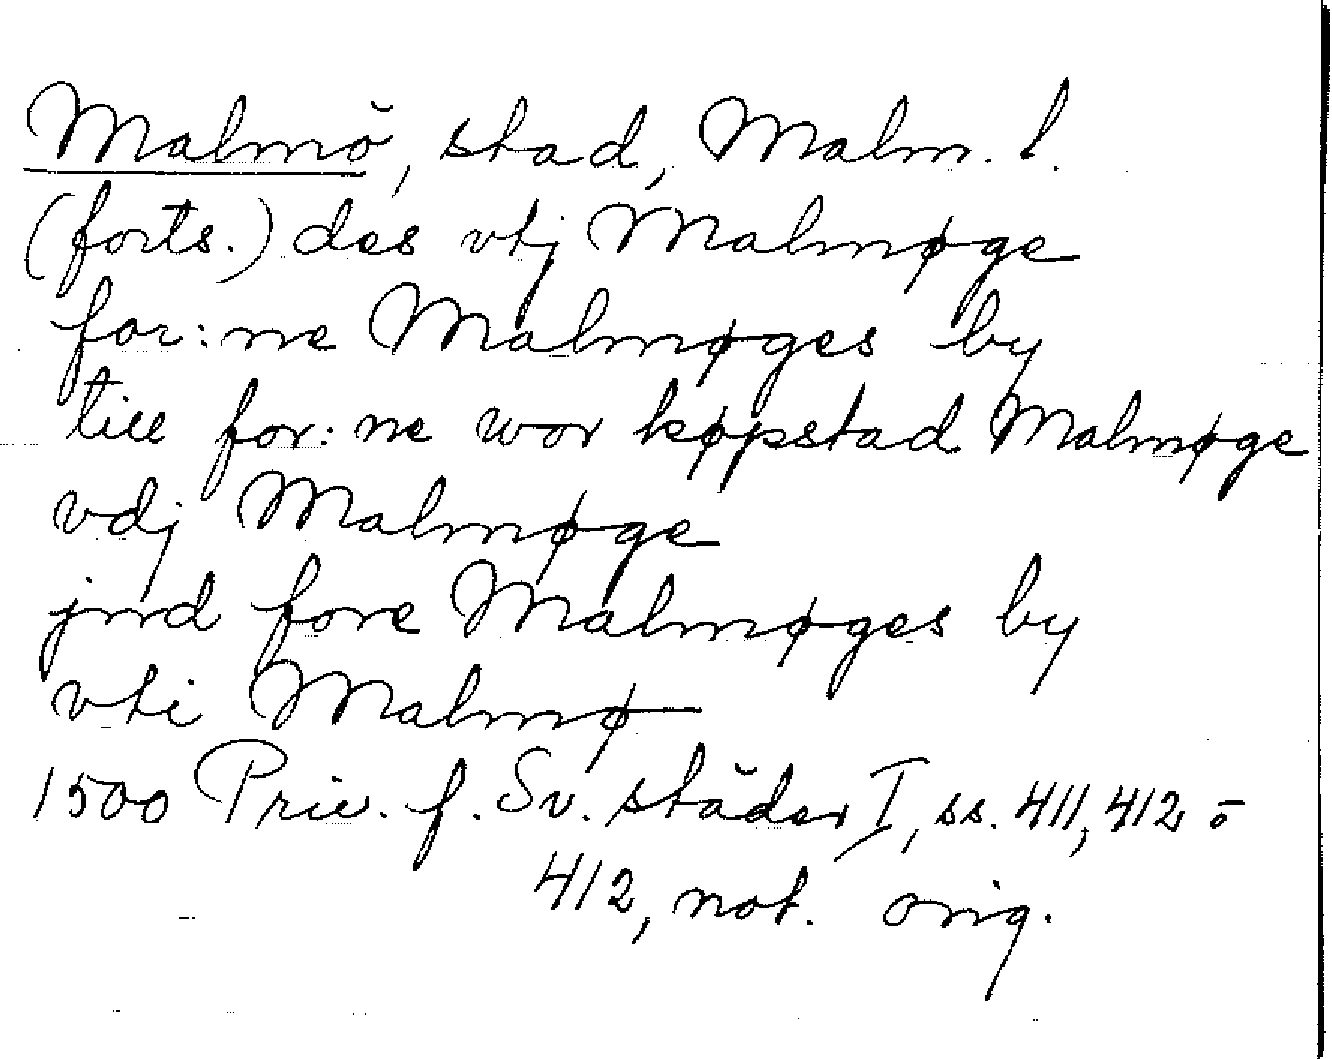 Malmö, stad, Malm. l.
(forts.) des vtj Malmøge
for:ne Malmøges by
till for:ne wor køpstad Malmøge
vdj Malmøge
jnd fore Malmøges by
vti Malmø
1500 Priv. f. Sv. städer I, ss. 411, 412 o
412, not. orig.